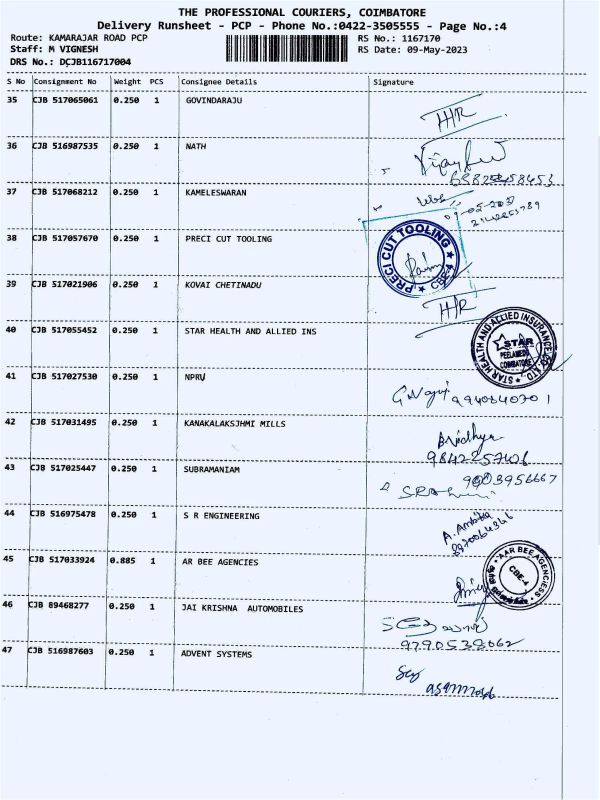 THE PROFESSIONAL COURIERS, COIMBATORE
Delivery Runsheet - PCP - Phone No.:0422-3505555 - Page No.:4
Route: KAMARAJAR ROAD PCP RS No.: 1167170
Staff: M VIGNESH RS Date: 09-May-2023
DRS No.: DCJB116717004
S No Consignment No Weight PCS Consignee Details Signature
35 CJB 517065061 0.250 1 GOVINDARAJU
H/R
36 CJB 516987535 0.250 1 NATH
37 CJB 517068212 0.250 1 KAMELESWARAN
38 CJB 517057670 0.250 1 PRECI CUT TOOLING
PRECI CUT TOOLING
CBE-4
39 CJB 517021906 0.250 1 KOVAI CHETINADU
H/R
40 CJB 517055452 0.250 1 STAR HEALTH AND ALLIED INS
STAR HEALTH AND ALLIED INSURANCE CO LTD
STAR
PEELAMEDU
COIMBATORE
41 CJB 517027530 0.250 1 NPRU
42 CJB 517031495 0.250 1 KANAKALAKSJHMI MILLS
43 CJB 517025447 0.250 1 SUBRAMANIAM
9003956667
44 CJB 516975478 0.250 1 S R ENGINEERING
45 CJB 517033924 0.885 1 AR BEE AGENCIES
AAR BEE AGENCIESS
CBE-4
46 CJB 89468277 0.250 1 JAI KRISHNA AUTOMOBILES
47 CJB 516987603 0.250 1 ADVENT SYSTEMS